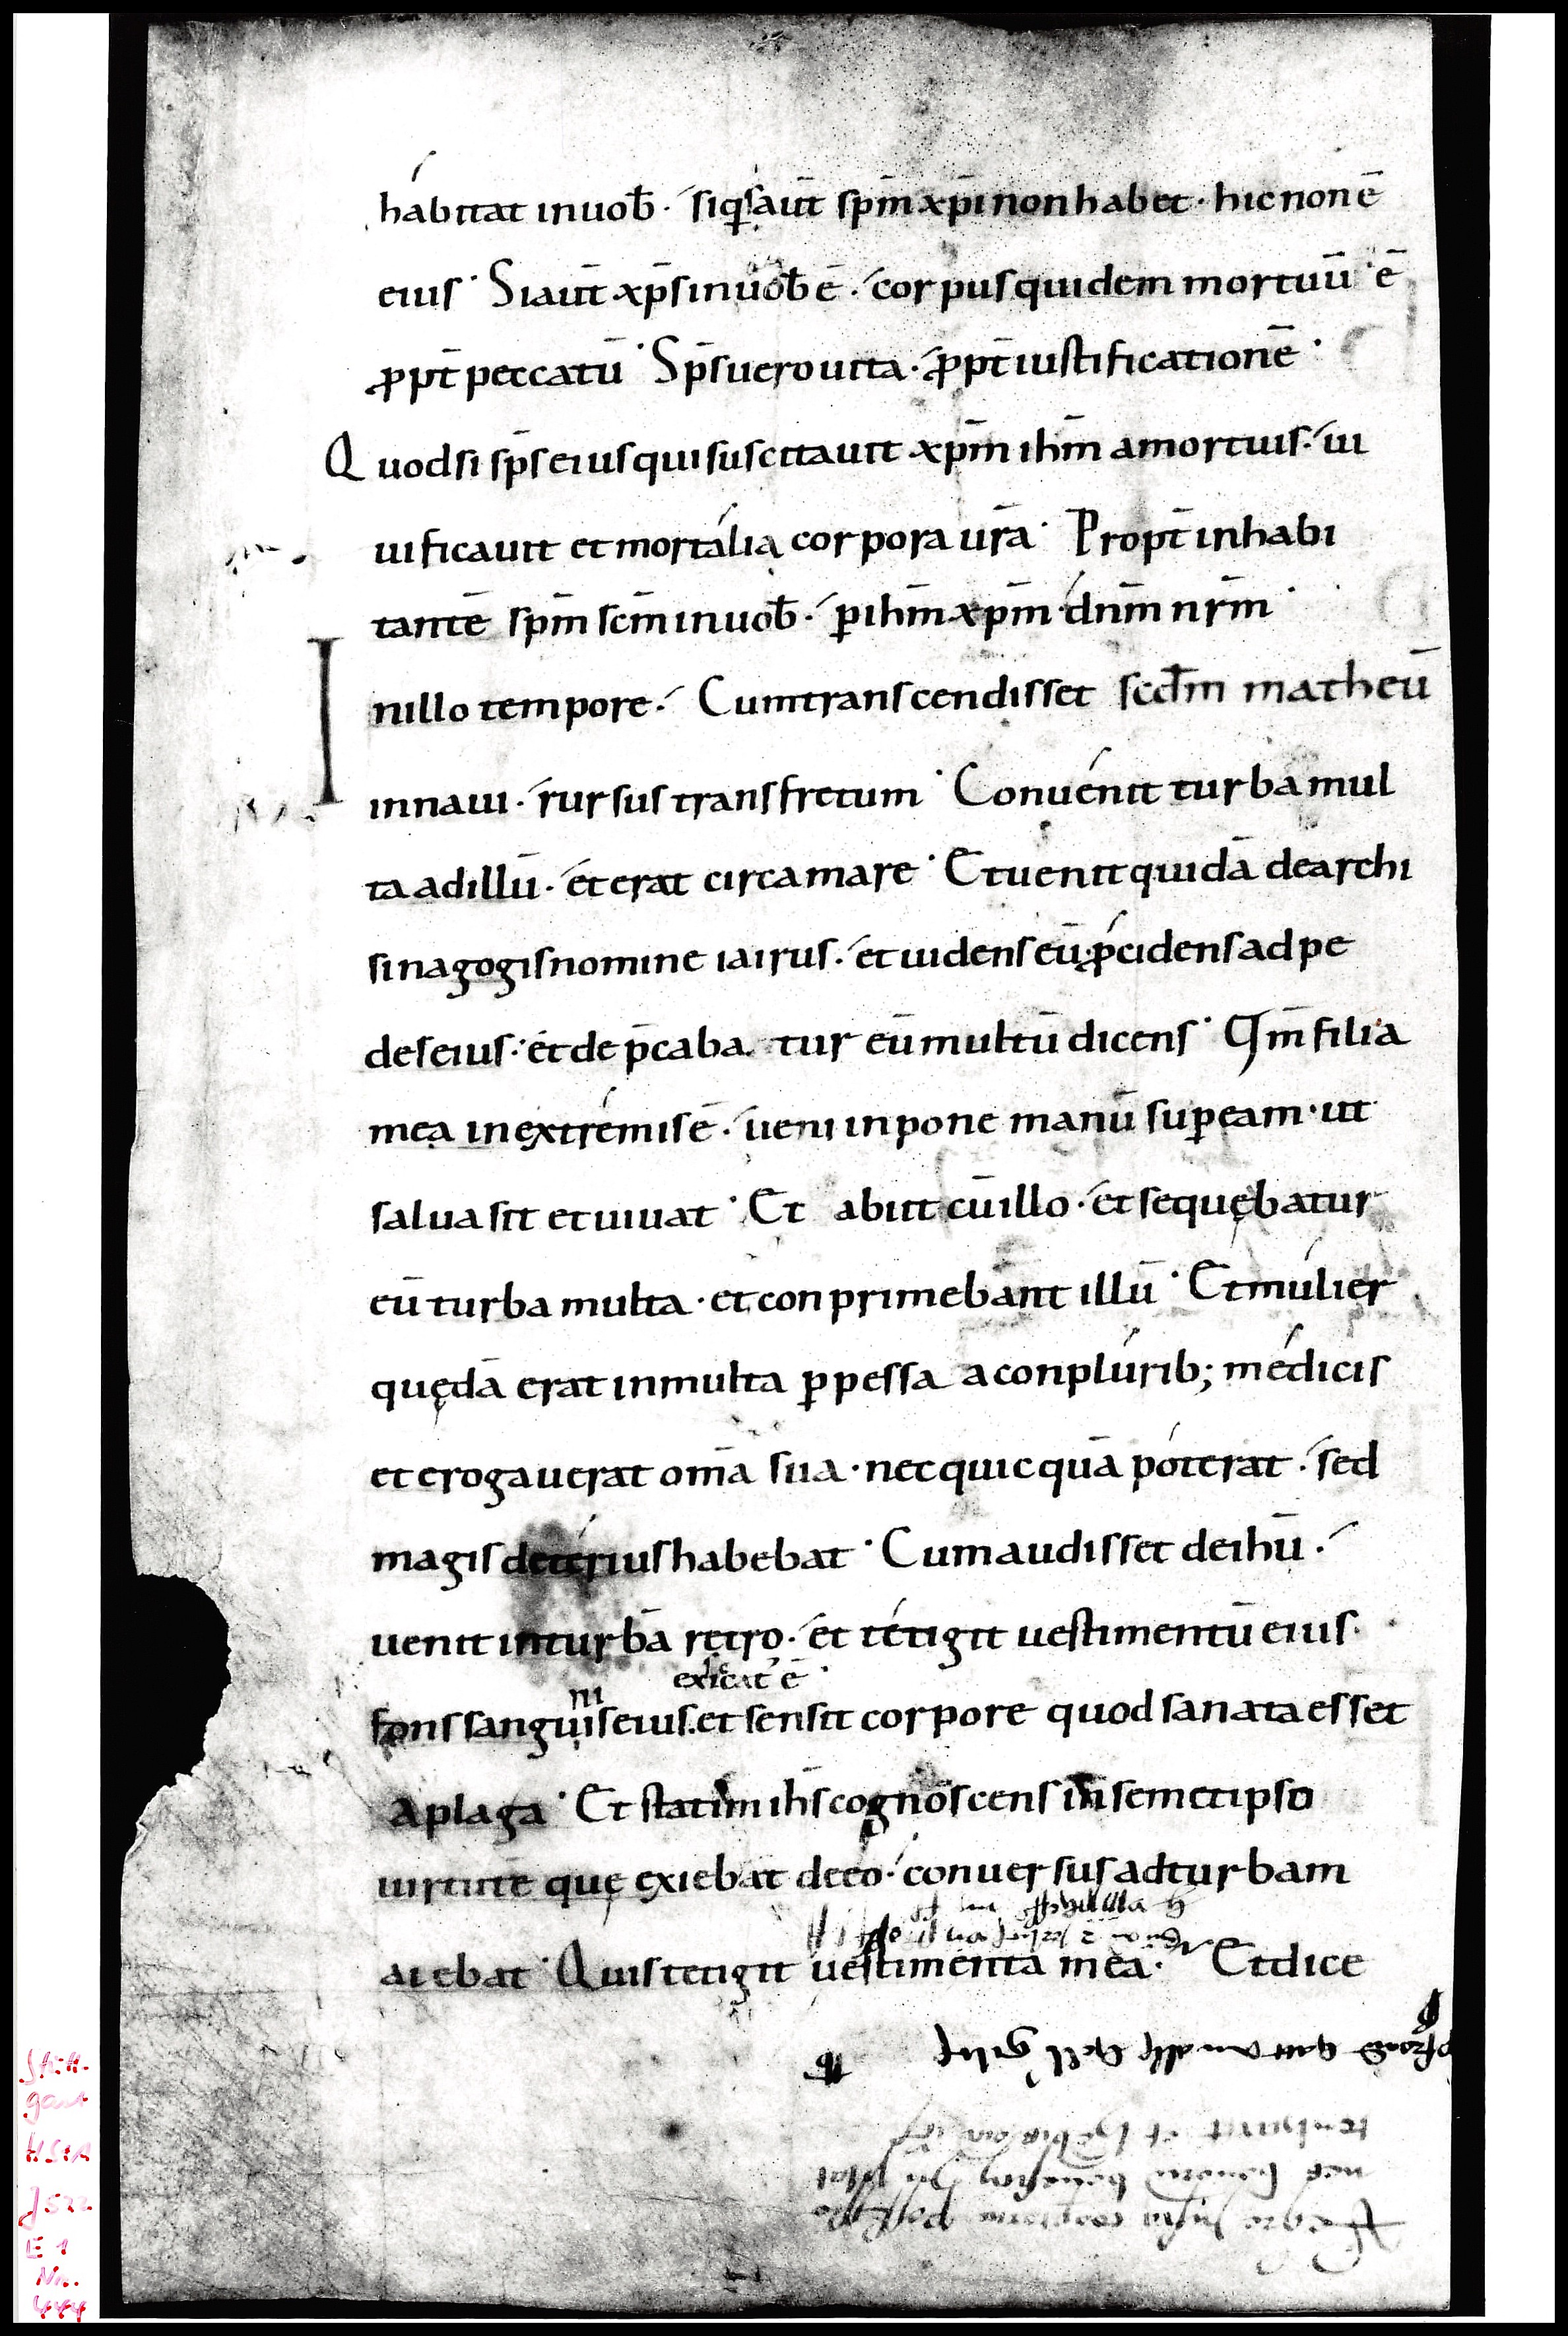 habitat inuob̄ · siq̇s aut̄ sp̄m xp̄i non habet · hic non ē
eius · Si aut̄ xp̄s in uob̄ ē · corpus quidem mortuū ē
ꝓpt̄ peccatū · Sp̄s uero uita · ꝓpt̄ iustificationē ·
Quodsi sp̄s eius qui suscitauit xp̄m ih̄m a mortuis · ui
uificauit et mortalia corpora ur̄a · Propt̄ inhabi
tantē sp̄m sc̄m in uob̄ · ꝑ ih̄m xp̄m dn̄m nr̄m ·
In illo tempore · Cum transcendisset sec̄dm matheū
in naui · rursus trans fretum · Conuenit turba mul
ta ad illū · et erat circa mare · Et uenit quidā de archi
sinagogis nomine iairus · et uidens eū ꝓcidens ad pe
des eius · et dep̄caba tur eū multū dicens · Qm̄ filia
mea in extremis ē · ueni inpone manū suꝑ eam · ut
salua sit et uiuat · Et abiit cū illo · et sequebatur
eū turba multa · et conprimebant illū · Et mulier
quędā erat in multa ꝑpessa a conplurib; medicis
et erogauerat om̄a sua · nec quicquā poterat · sed
magis deterius habebat · Cum audisset de ih̄u ·
uenit in turbā retro · et tetigit uestimentū eius ·
exsicat' ē ·
ni
fons sanguis eius · et sensit corpore quod sanata esset
a plaga · Et statim ih̄s cognoscens in semetipso
uirtutē que exiebat de eo · conuersus ad turbam
aiebat · Quis tetigit uestimenta mea · Et dice
Stutt-
gart
HStA
J 522
E 1
Nr.
444